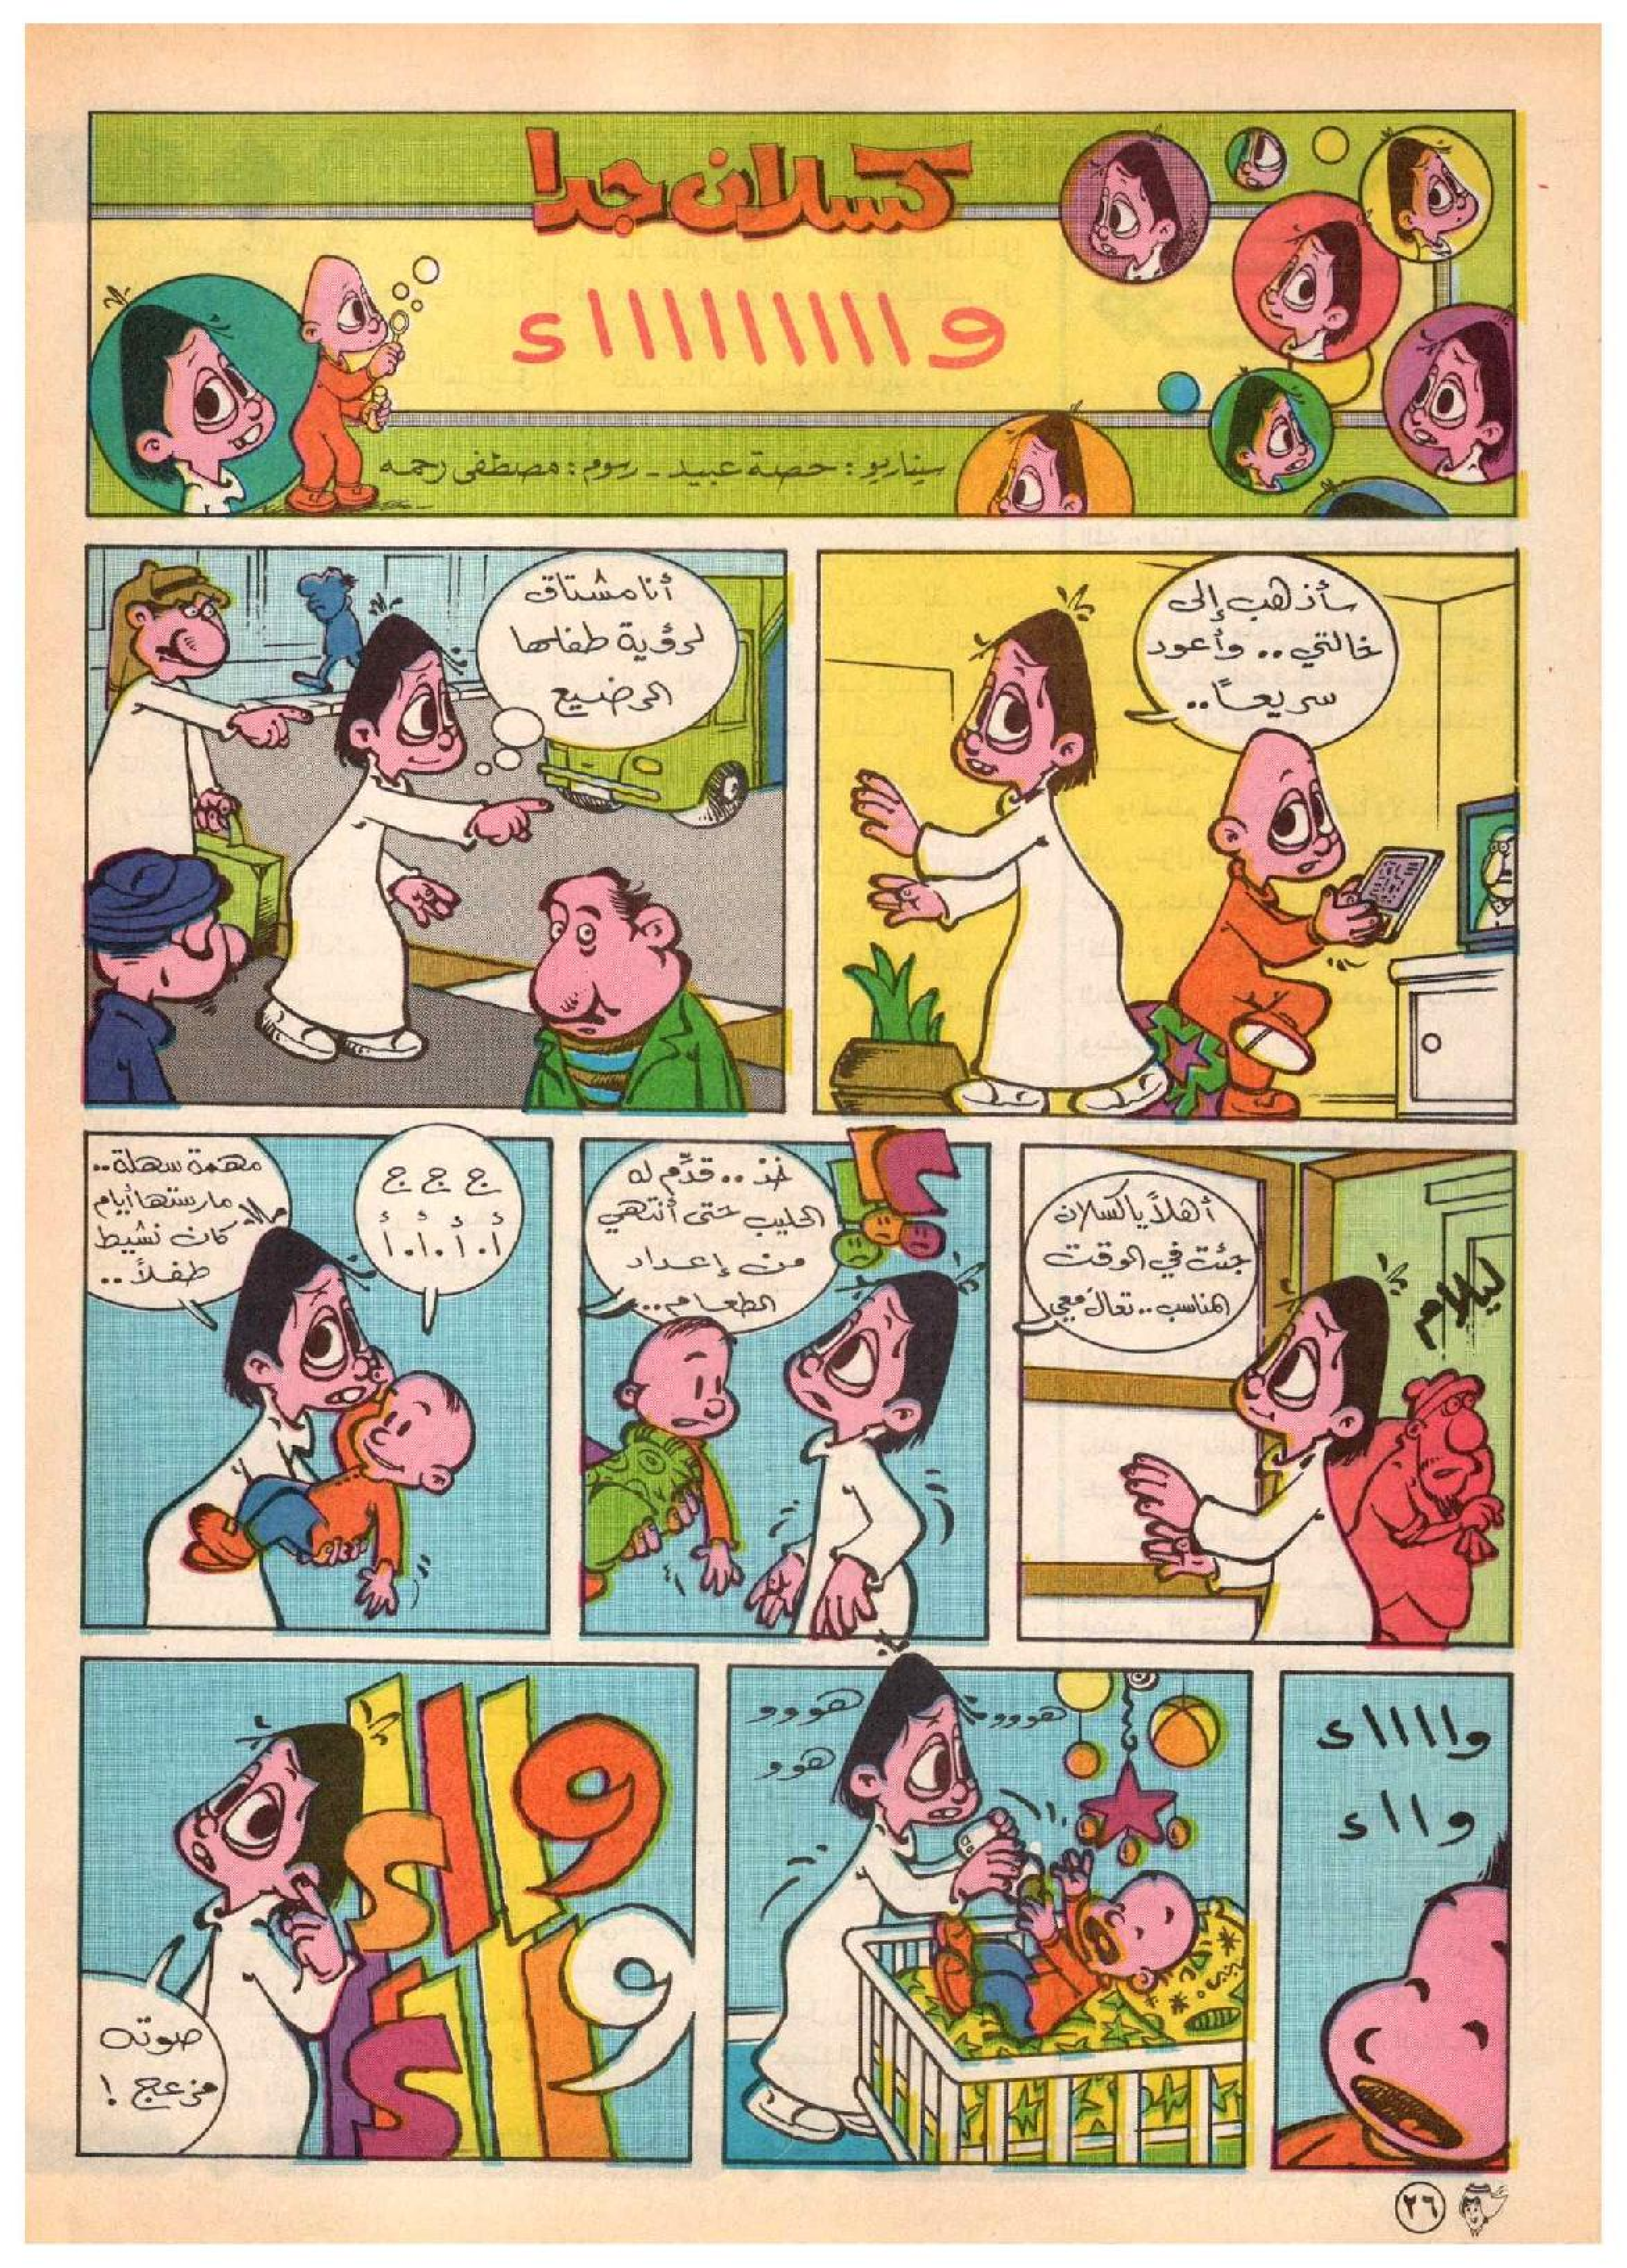 كسلان جدا
وااااااااااء
سيناريو : حصة عبيد - رسوم : مصطفى رحمه
سأذهب إلى
خالتي .. وأعود
سريعاً..
أنا مشتاق
لرؤية طفلها
الرضيع
أهلاً يا كسلان
جئت في الوقت
المناسب .. تعالَ معي
خذ .. قدِّم له
الحليب حتى أنتهي
من إعداد
الطعام ..
ج ج ج
أ . أ . أ . أ
مهمة سهلة..
مارستها أيام
كان نشيط
طفلاً ..
واااااء
وااء
هووو
هوووو
هوو
وااء
وااء
صوته
مزعج !
٢٦